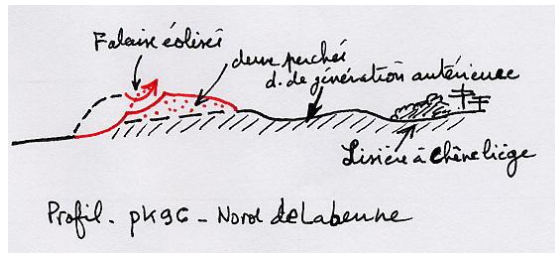 Falaise éolisée
dune perchée
d. de génération antérieure
Lisière à chêne liège
Profil - pk96 - Nord de Labenne